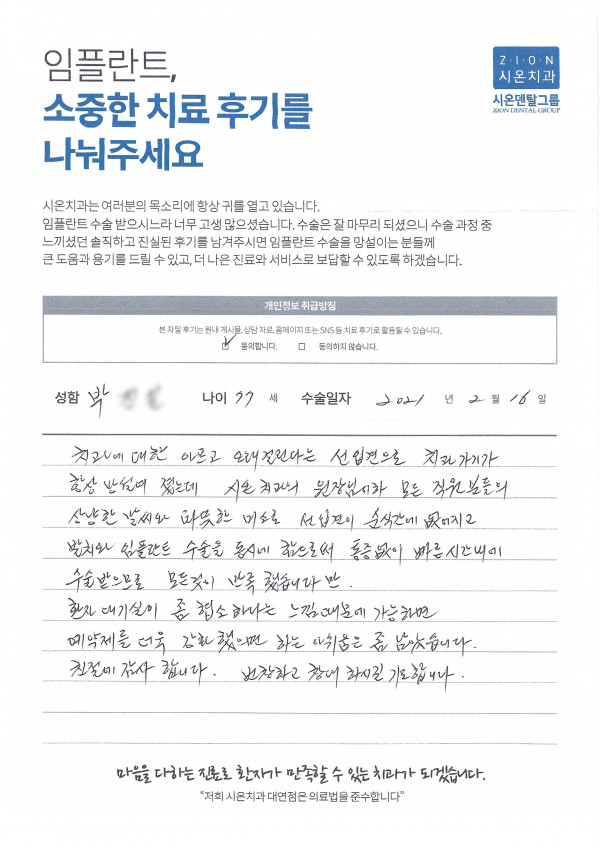 임플란트,
소중한 치료 후기를
나눠주세요
Z·I·O·N
시온치과
시온덴탈그룹
ZION DENTAL GROUP
시온치과는 여러분의 목소리에 항상 귀를 열고 있습니다.
임플란트 수술 받으시느라 너무 고생 많으셨습니다. 수술은 잘 마무리 되셨으니 수술 과정 중
느끼셨던 솔직하고 진실된 후기를 남겨주시면 임플란트 수술을 망설이는 분들께
큰 도움과 용기를 드릴 수 있고, 더 나은 진료와 서비스로 보답할 수 있도록 하겠습니다.
개인정보 취급방침
본 자필 후기는 원내 게시물, 상담 자료, 홈페이지 또는 SNS 등 치료 후기로 활용될 수 있습니다.
동의합니다. 동의하지 않습니다.
성함 박 나이 77 세 수술일자 2021 년 2 월 16 일
치과에 대한 아프고 오래걸린다는 선입견으로 치과가기가
항상 망설여 졌는데 시온치과의 원장님이하 모든 직원분들의
상냥한 말씨와 따뜻한 미소로 선입견이 순식간에 없어지고
발치와 임플란트 수술을 동시에 함으로써 통증없이 빠른시간내에
수술받으므로 모든것이 만족 했습니다 만.
환자 대기실이 좀 협소하다는 느낌 때문에 가능하면
예약제를 더욱 강화 했으면 하는 아쉬움은 좀 남았습니다.
친절에 감사 합니다. 번창하고 창대 하시길 기도합니다.
마음을 다하는 진료로 환자가 만족할 수 있는 치과가 되겠습니다.
“저희 시온치과 대연점은 의료법을 준수합니다”